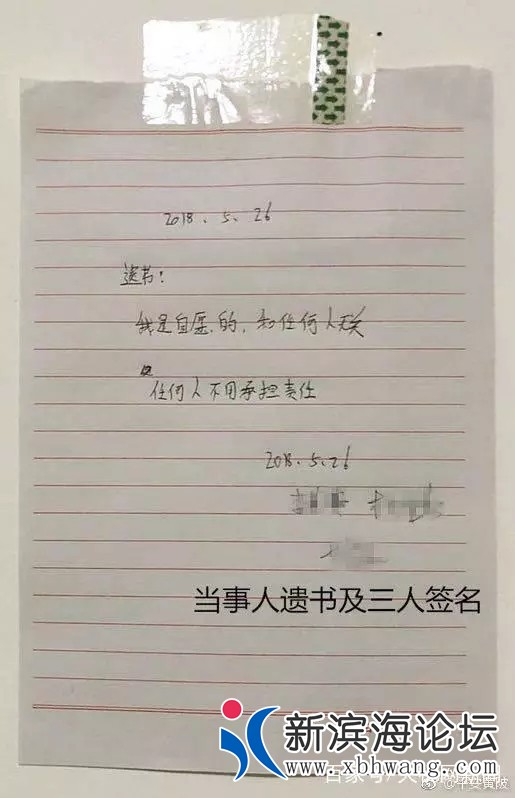 2018.5.26
遗书:
我是自愿的,和任何人无关
任何人不用承担责任
2018.5.26
当事人遗书及三人签名
新滨海论坛
www.xbhwang.com
@平安黄陂